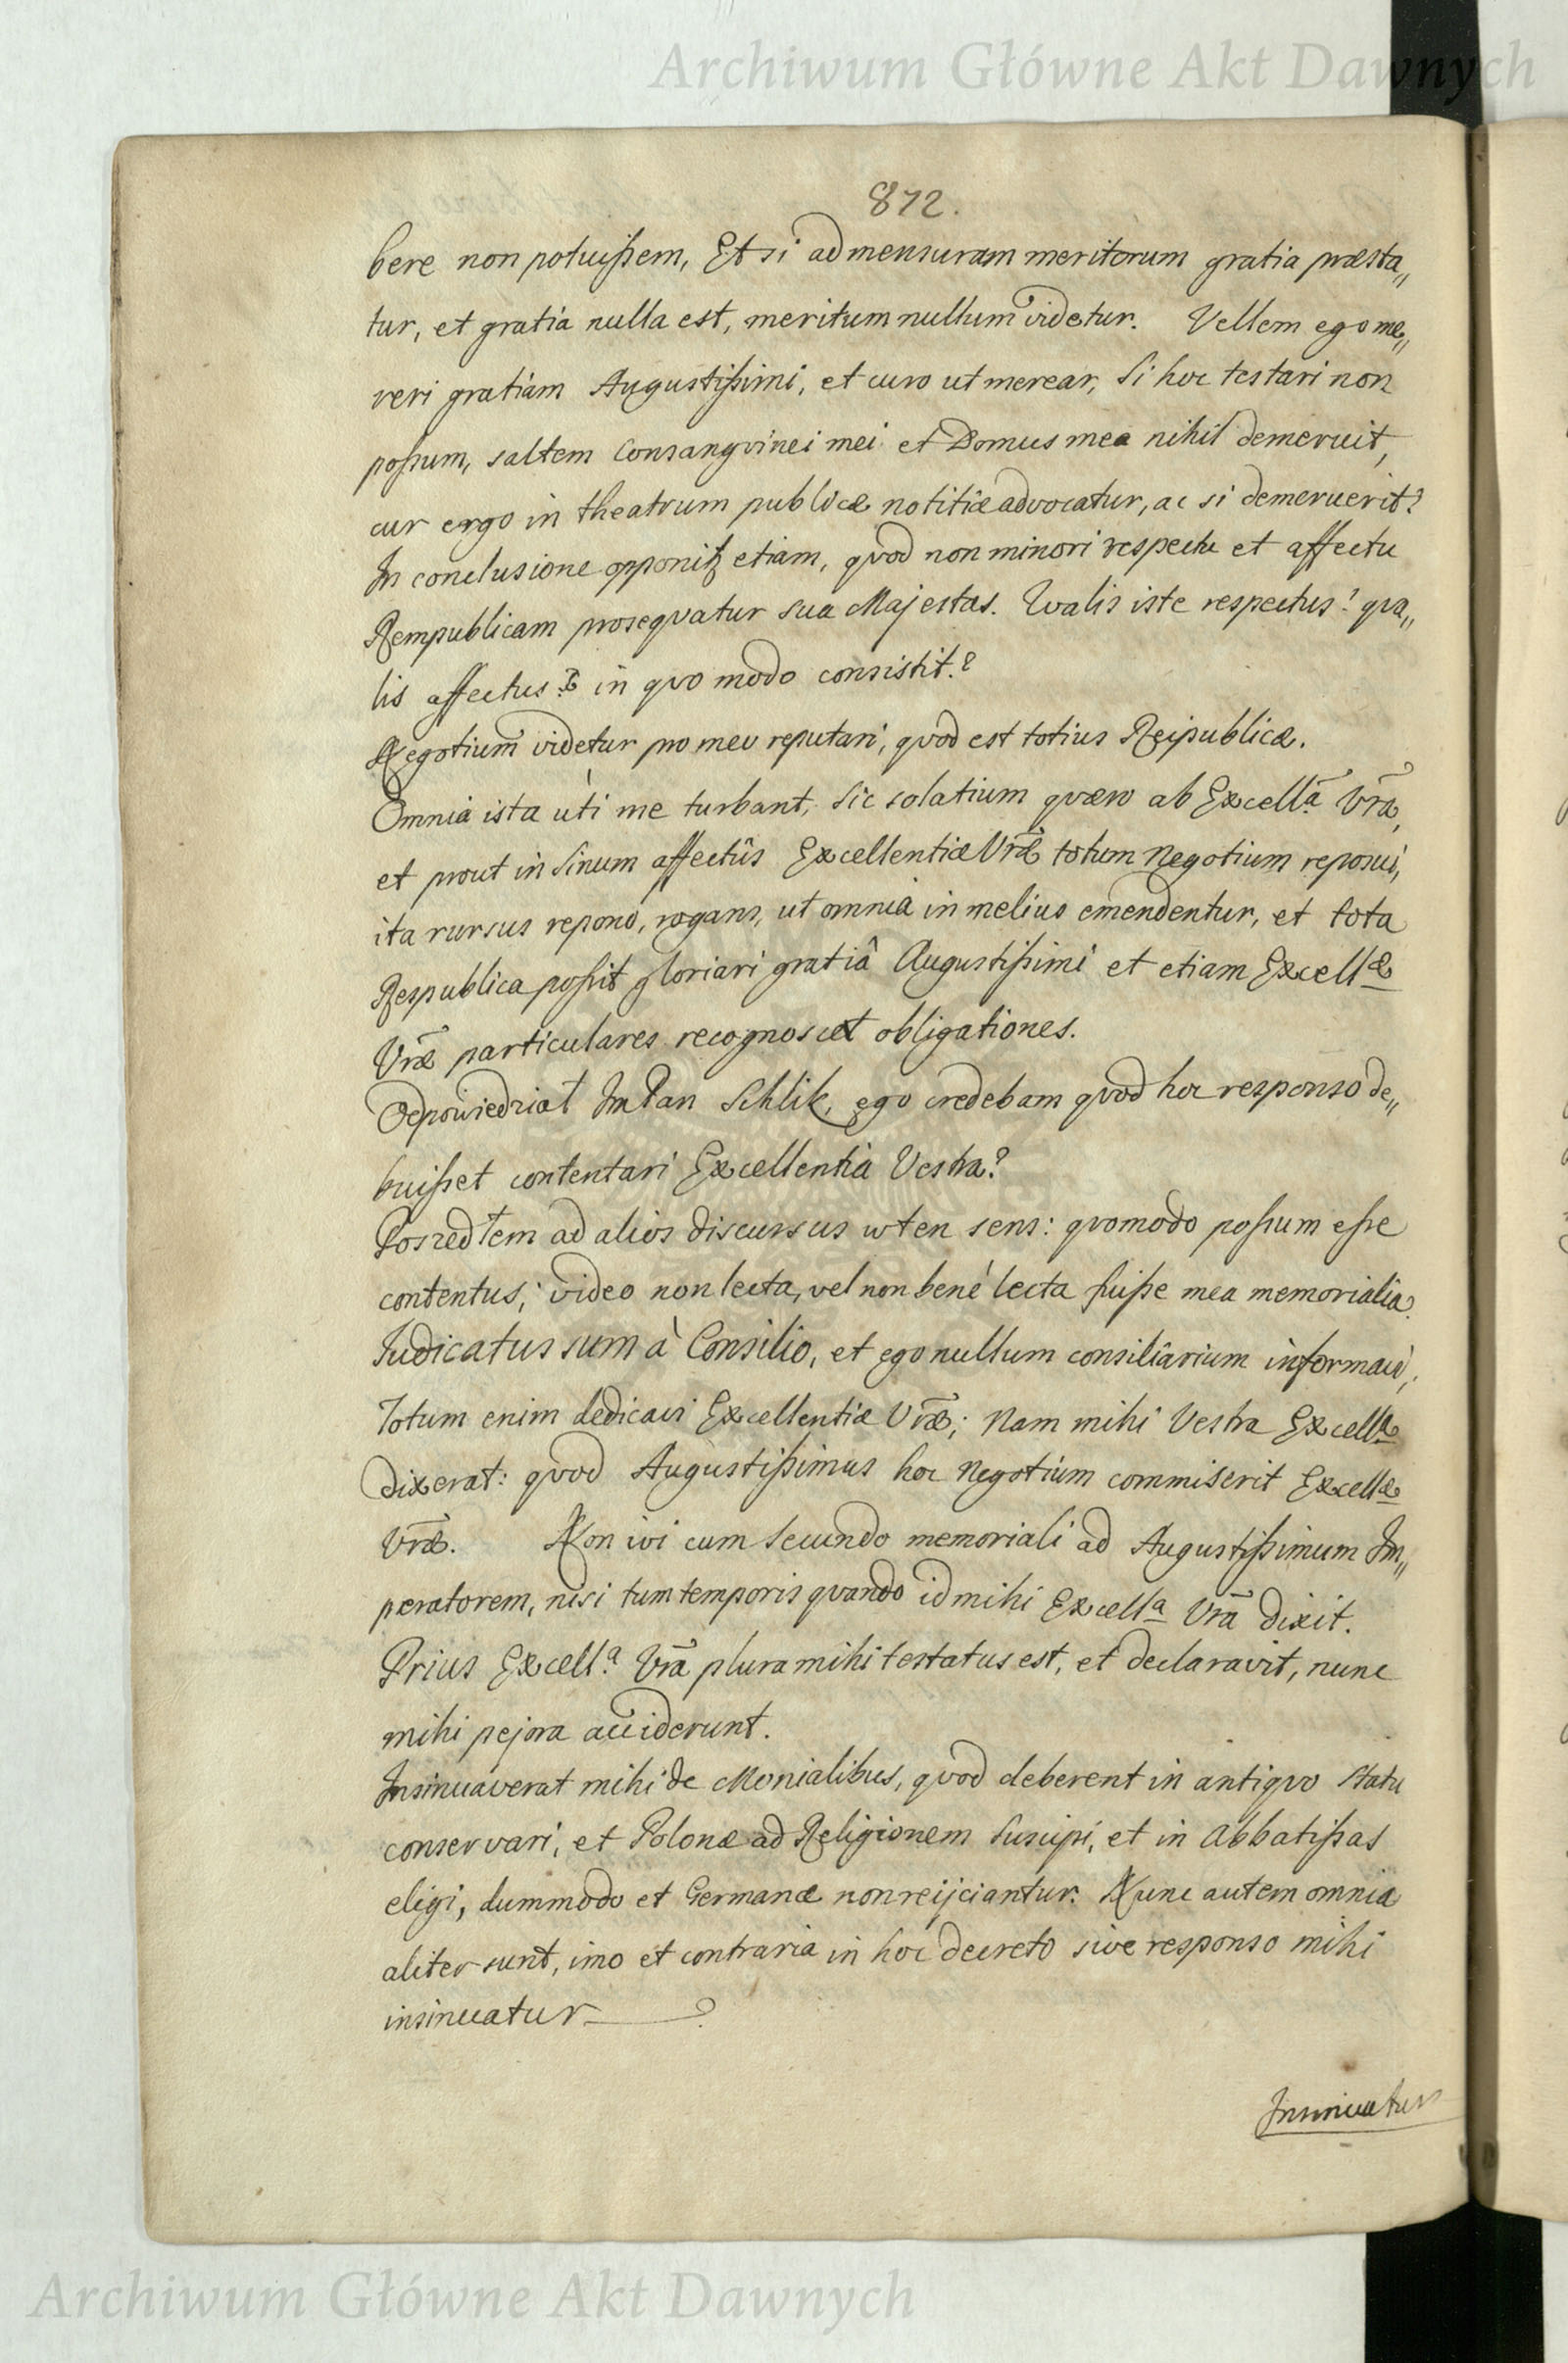 Archiwum Główne Akt Dawnych
872.
bere non potuißem, Et si ad mensuram meritorum gratia præsta„
tur, et gratia nulla est, meritum nullum videtur. Vellem ego me„
reri gratiam Augustißimi, et curo ut merear, Si hoc testari non
poßum, saltem Consangvinei mei et Domus mea nihil demeruit,
cur ergo in theatrum publicæ notitiæ advocatur, ac si demeruerit?
In conclusione opponitz etiam, qvod non minori respectu et affectu
Rempublicam proseqvatur sua Majestas. Qvalis iste respectus? qva„
lis affectus? in qvo modo consistit?
Negotium videtur pro meo reputari, qvod est totius Reipublicæ.
Omnia ista ùti me turbant, Sic solatium qværo ab Excellã Vrã,
et prout in Sinum affectûs Excellentiæ Vræ̃ totum Negotium reposui,
ita rursus repono, rogans, ut omnia in melius emendentur, et tota
Respublica poßit gloriari gratiâ Augustißimi et etiam Excellæ
Vræ̃ particulares recognoscet obligationes.
Odpowiedział Im Pan Schlik, ego credebam qvod hoc responso de„
buißet contentari Excellentia Vestra?
Poszedłem ad alios discursus w ten sens: qvomodo poßum eße
contentus; video non lecta, vel non benè lecta fuiße mea memorialia.
Judicatus sum à Consilio, et ego nullum consiliarium informavi,
Totum enim dedicavi Excellentiæ Vræ̃; Nam mihi Vestra Excellª
dixerat: qvod Augustißimus hoc Negotium commiserit Excellæ
Vræ̃. Non ivi cum Secundo memoriali ad Augustißimum Im„
peratorem, nisi tum temporis qvando id mihi Excellª Vrã dixit.
Prius Excell.ª Vrã plura mihi testatus est, et declaravit, nunc
mihi pejora acciderunt.
Insinuaverat mihi de Monialibus, qvod deberent in antiqvo statu
conservari, et Polonæ ad Religionem Suscipi, et in Abbatißas
eligi, dummodo et Germanæ non reijciantur. Nunc autem omnia
aliter sunt, imo et contraria in hoc decreto sive responso mihi
insinuatur
Insinuatur
Archiwum Główne Akt Dawnych